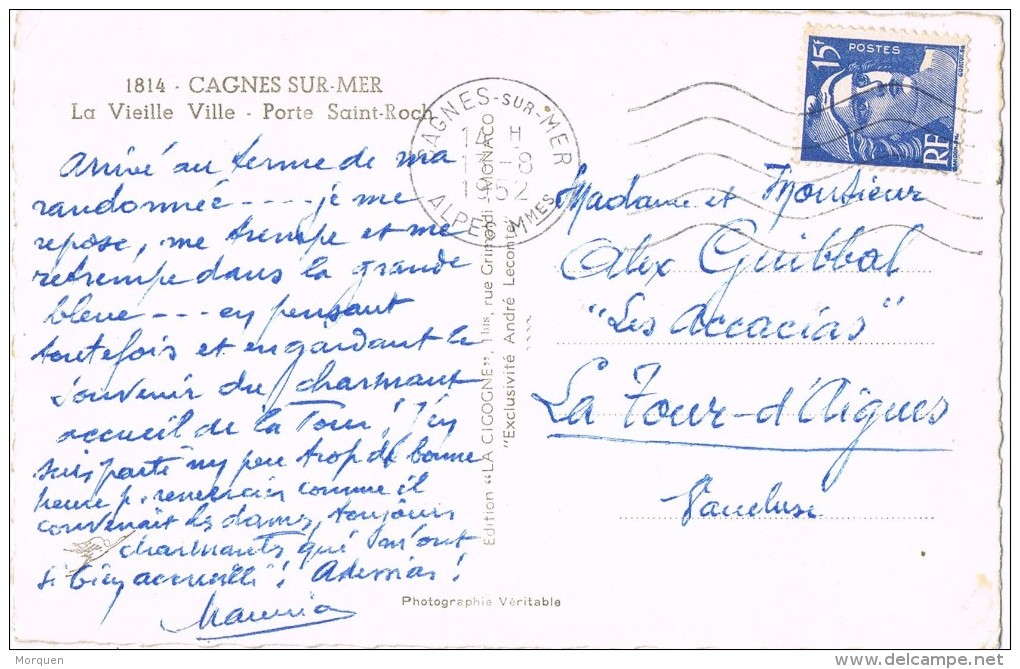 1814 - CAGNES SUR-MER
La Vieille Ville - Porte Saint-Roch
Arrivé au terme de ma
randonnée --- je me
repose, me trempe et me
retrempe dans la grande
bleue --- en pensant
toutefois et en gardant le
souvenir du charmant
accueil de la Tour! J'en
suis parti un peu trop de bonne
heure p. remercier comme il
convenait les dames, toujours
charmantes qui m'ont
si bien accueilli!
CAGNES-SUR-MER
14 H
1 -8
1952
ALPES MMES
Edition "LA CIGOGNE", 1 bis, rue Grimaldi - MONACO
"Exclusivité André Leconte"
15F
POSTES
RF
Madame et Monsieur
Alex Guibbal
"Les Accacias"
La Tour-d'Aigues
Vaucluse
Photographie Véritable
Morquen
delcampe.net